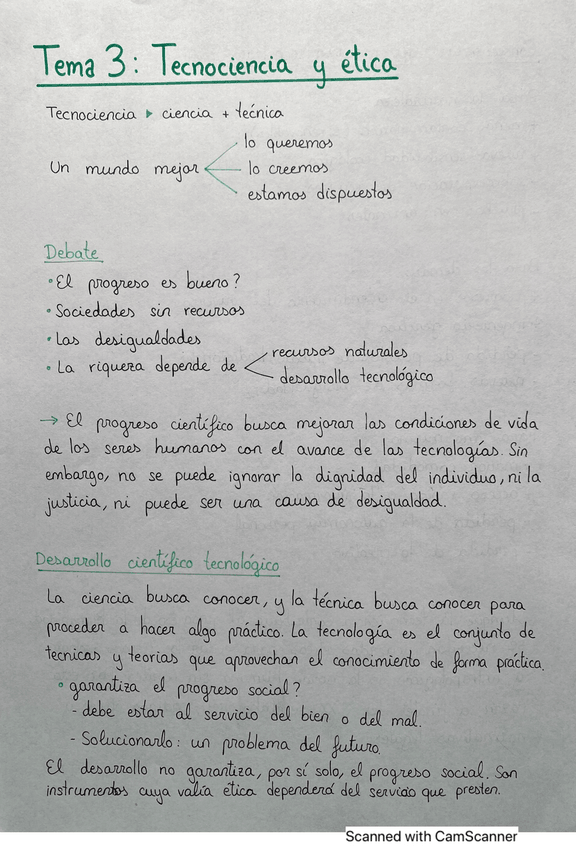 Tema 3: Tecnociencia y ética
Tecnociencia ▸ ciencia + técnica
lo queremos
Un mundo mejor
lo creemos
estamos dispuestos
Debate
• El progreso es bueno?
• Sociedades sin recursos
• Las desigualdades
• La riqueza depende de
recursos naturales
desarrollo tecnológico
→ El progreso científico busca mejorar las condiciones de vida
de los seres humanos con el avance de las tecnologías. Sin
embargo, no se puede ignorar la dignidad del individuo, ni la
justicia, ni puede ser una causa de desigualdad.
Desarrollo científico tecnológico
La ciencia busca conocer, y la técnica busca conocer para
proceder a hacer algo práctico. La tecnología es el conjunto de
tecnicas y teorías que aprovechan el conocimiento de forma práctica.
• garantiza el progreso social?
- debe estar al servicio del bien o del mal.
- Solucionarlo: un problema del futuro.
El desarrollo no garantiza, por sí solo, el progreso social. Son
instrumentos cuya valía ética dependerá del servicio que presten.
Scanned with CamScanner